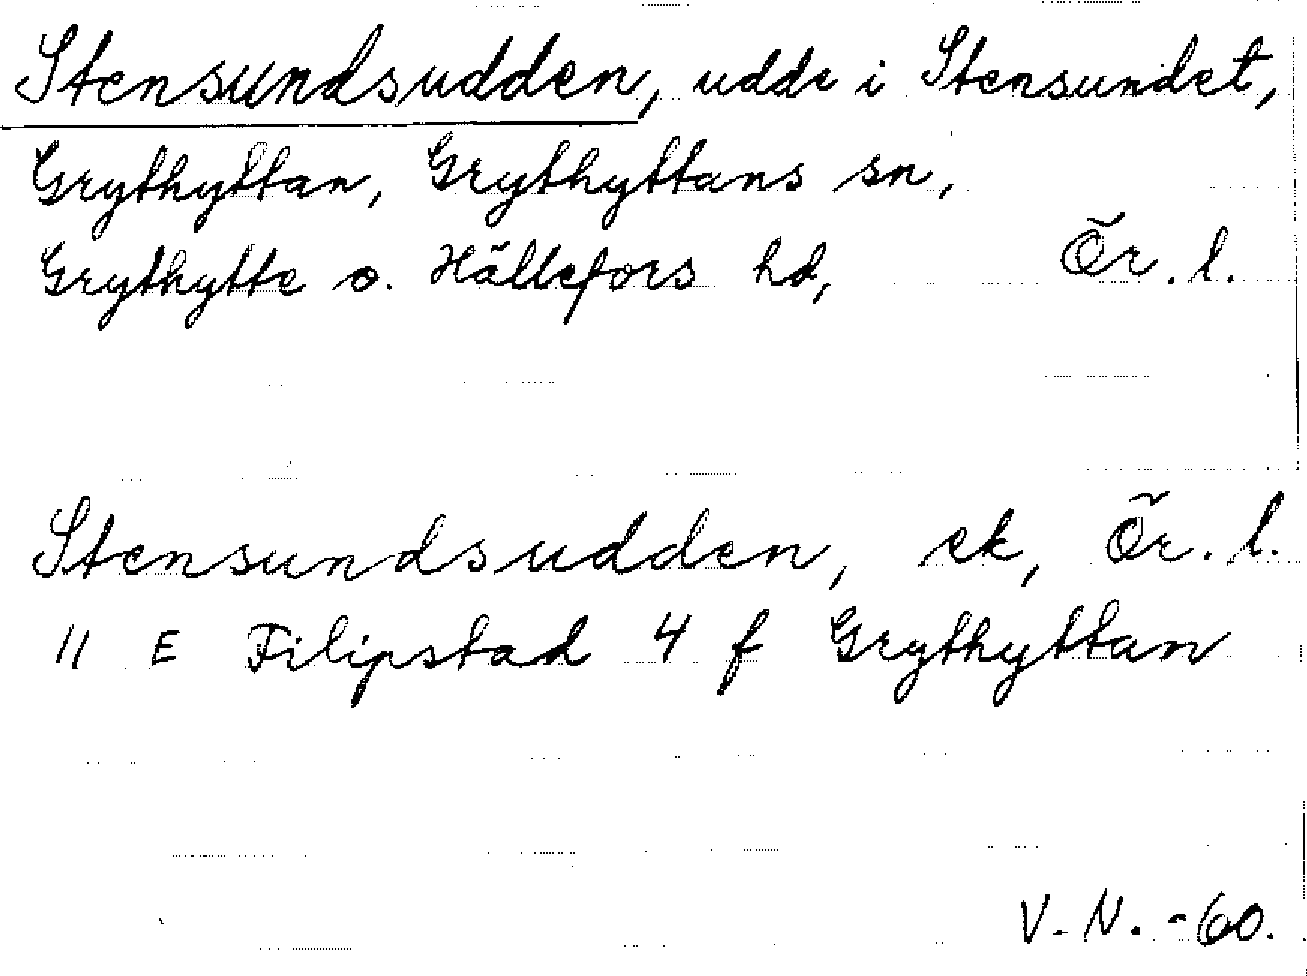 Stensundsudden, udde i Stensundet,
Grythyttan, Grythyttans sn,
Grythytte o. Hällefors hd, Ör. l.
Stensundsudden, ek, Ör. l.
11 E Filipstad 4 f Grythyttan
V. N. -60.